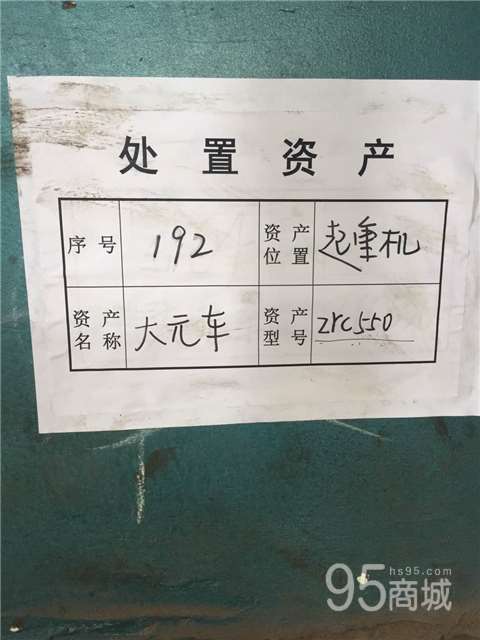 处置资产
序号 192 资产位置 起重机
资产名称 大元车 资产型号 ZYC550
95商城
hs95.com